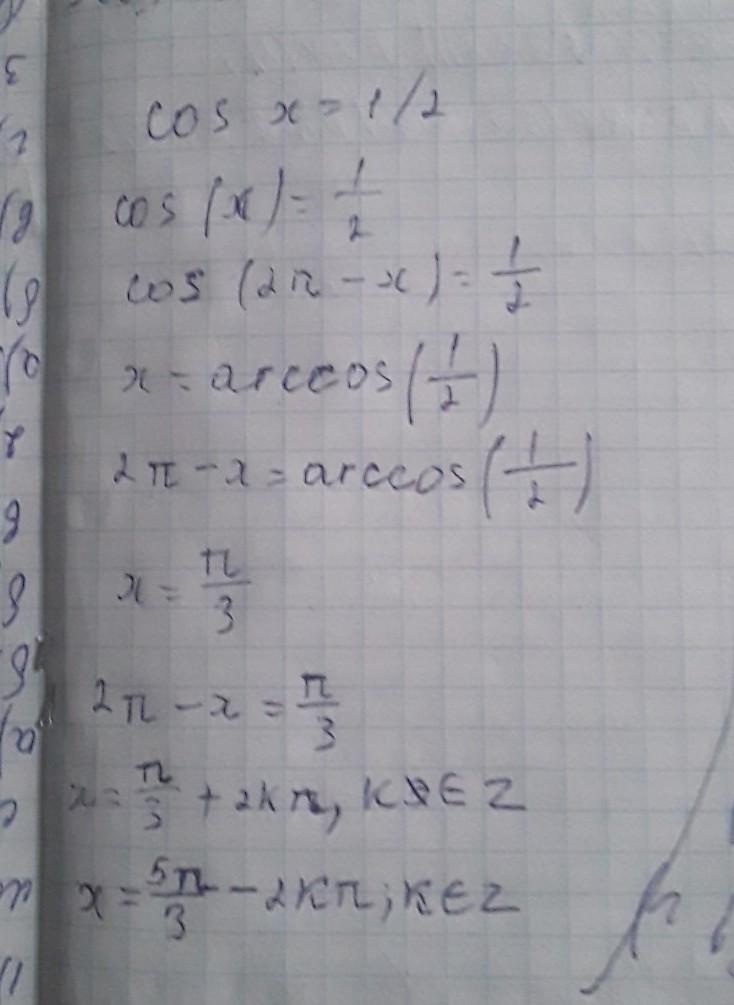 cos x = 1/2
cos (x) = 1/2
cos (2π - x) = 1/2
x = arccos (1/2)
2π - x = arccos (1/2)
x = π/3
2π - x = π/3
x = π/3 + 2kπ, k ∈ Z
x = 5π/3 - 2kπ; k ∈ Z